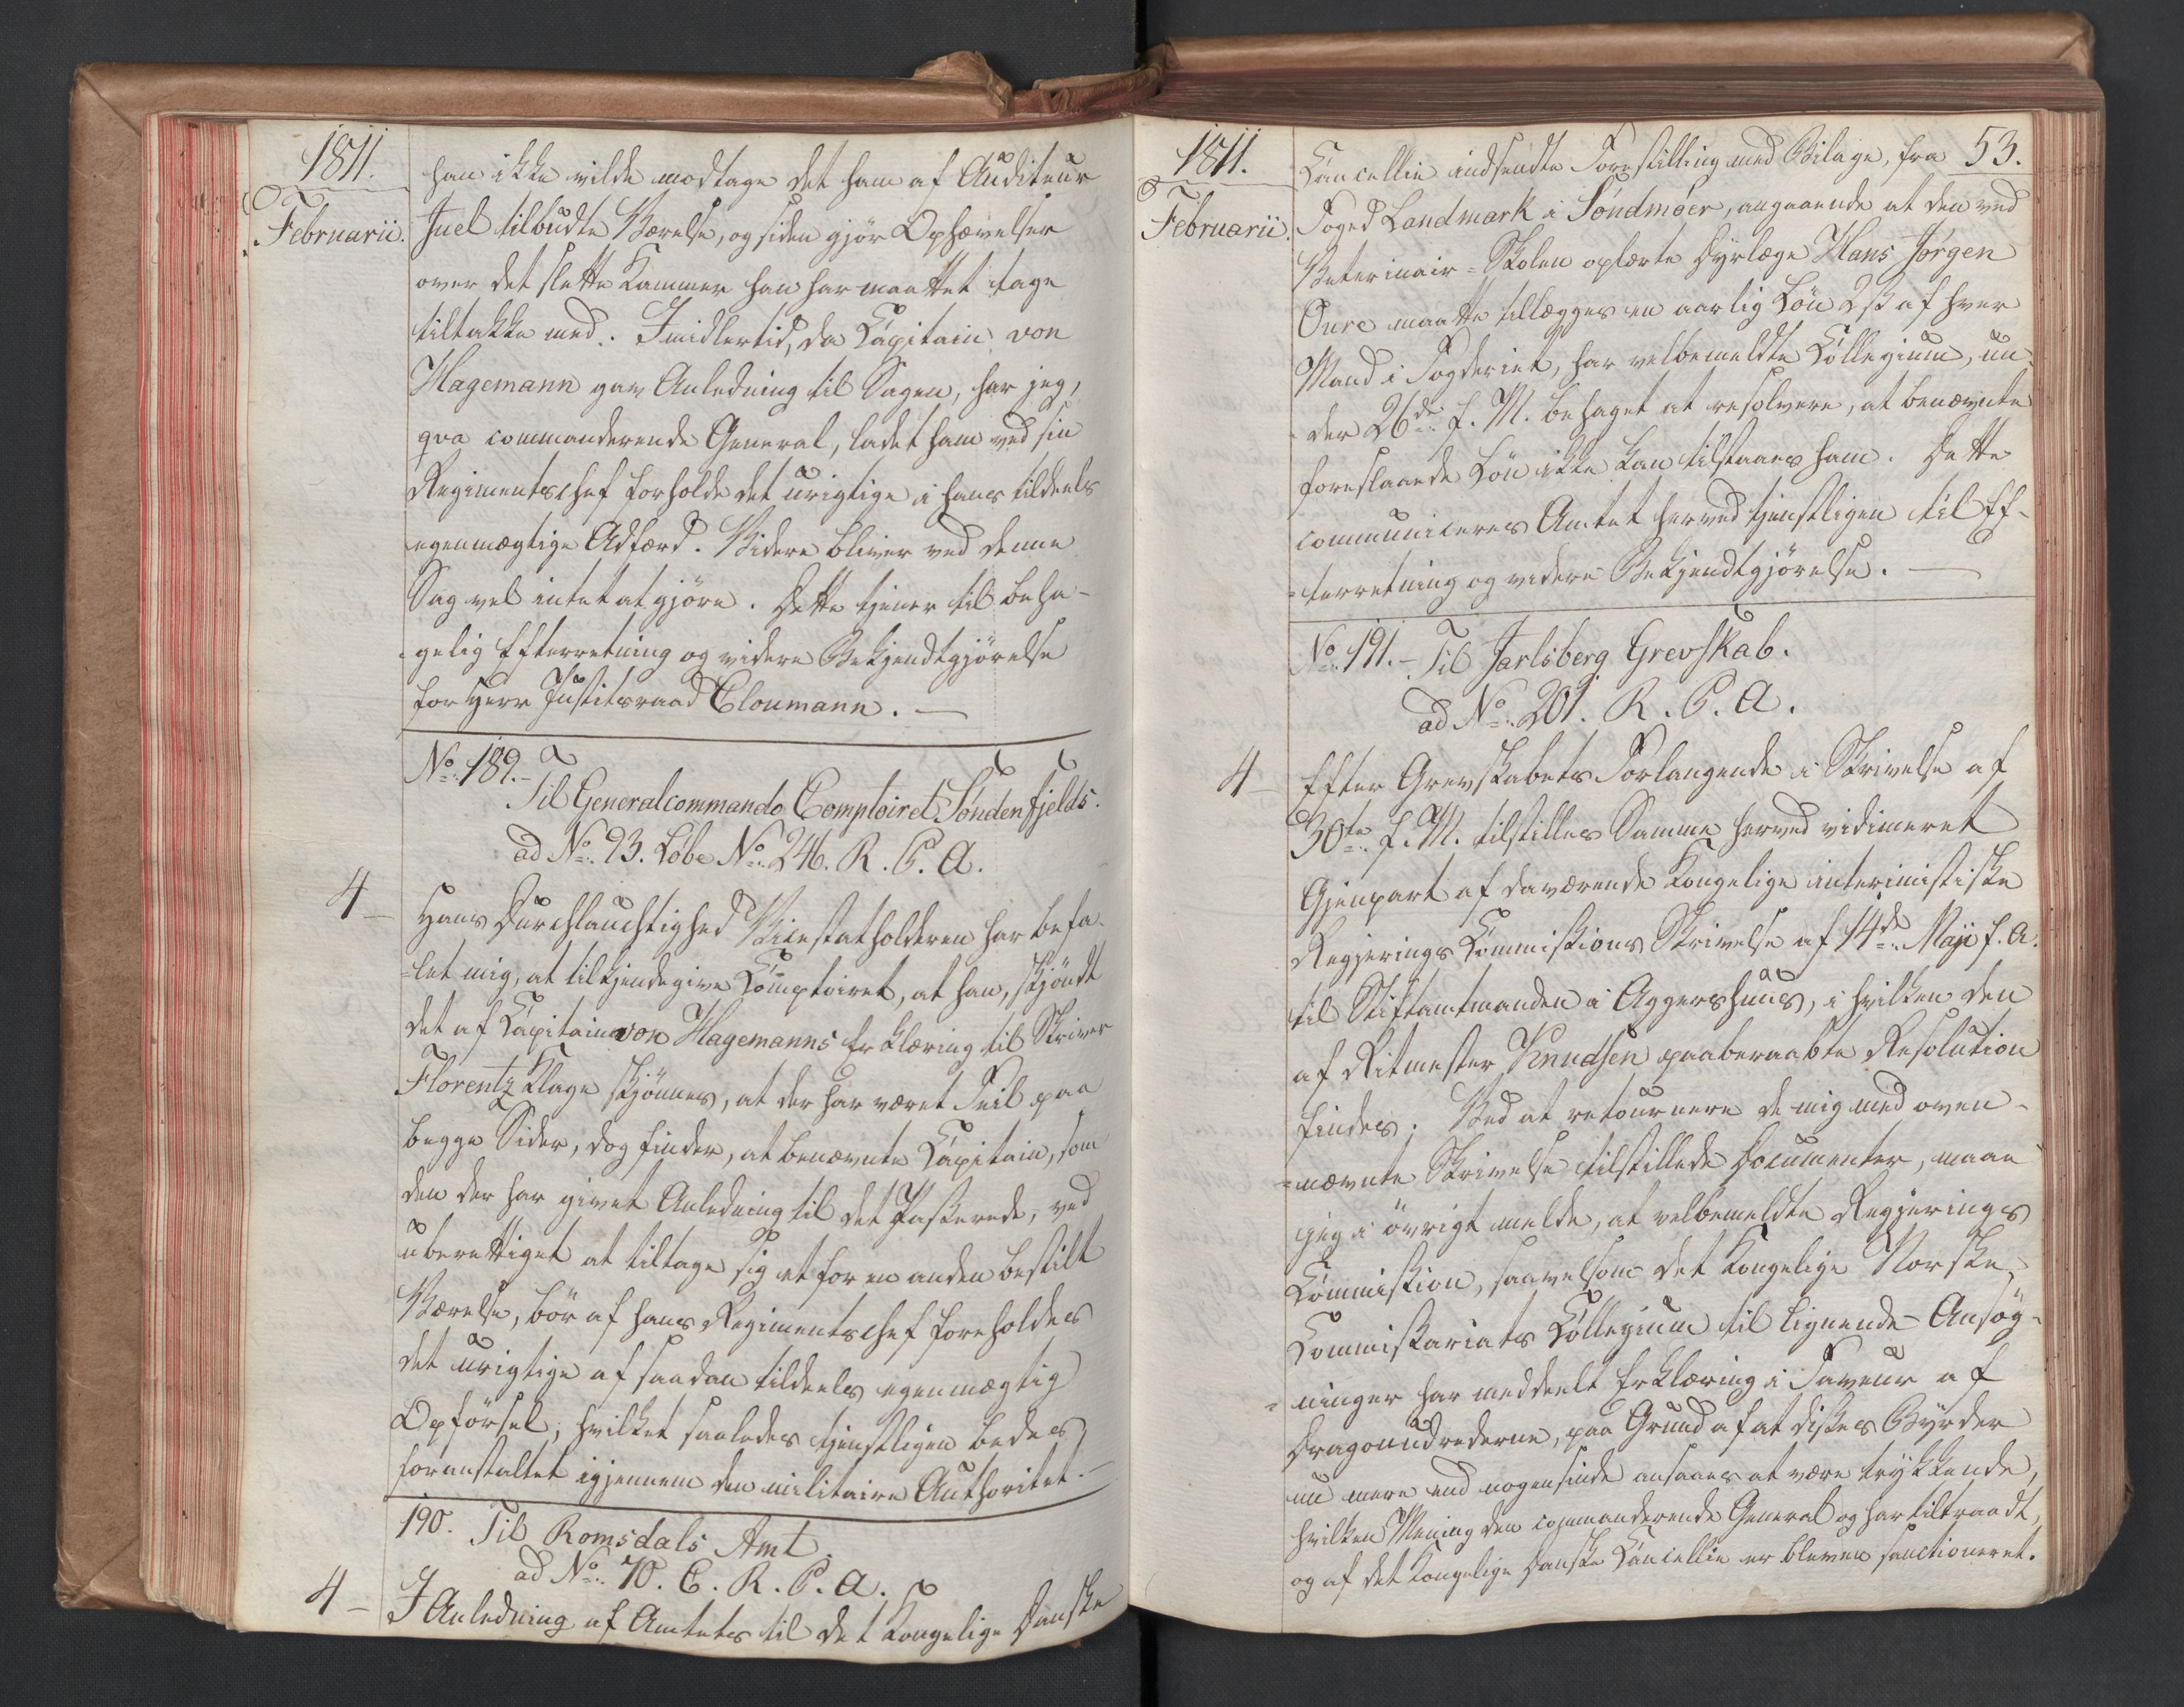 1811.
Februarii.
han ikke vilde modtage det ham af Auditeur
Juel tilbudte Værelse, og siden gjør Ophævelser
over det slette Kammer han har maattet tage
tiltakke med. Imidlertid, da Capitain von
Hagemann gav Anledning til Sagen, har jeg,
qva commanderende General, ladet ham ved sin
Regimentschef forholde det urigtige i hans tildeels
egenmægtige Adfærd. Videre bliver ved denne
Sag vel intet at gjøre. Dette tjener til beha-
-gelig Efterretning og videre Bekjendtgjørelse
for Herr Justitsraad Cloumann. —
No. 189. –
Til Generalcommando Comptoiret Søndenfjelds.
ad No. 93. Løbe No. 246. R. C. A.
4 –
Hans Durchlauchtighed Vicestatholderen har befa-
-let mig, at tilkjendegive Comptoiret, at han, skjøndt
det af Capitain von Hagemanns Erklæring til Skriver
Florentz Klage skjønnes, at der har været Feil paa
begge Sider, dog finder, at benævnte Capitain, som
den der har givet Anledning til det Passerede, ved
uberettiget at tiltage sig et for en anden bestilt
Værelse, bør af hans Regimentschef foreholdes
det urigtige af saadan tildeels egenmægtig
Opførsel, hvilket saaledes tjenstligen bedes
foranstaltet igjennem den militaire Authoritet. –
190. Til Romsdals Amt.
ad No. 70. C. R. C. A.
4 –
I Anledning af Amtets til det Kongelige Danske
1811.
Februarii.
53.
Cancellie indsendte Forestilling med Bilage, fra
Foged Landmark i Søndmøer, angaaende at den ved
Veterinair-Skolen oplærte Dyrlæge Hans Jørgen
Oure maatte tillægges en aarlig Løn 2 ß af hver
Mand i Fogderiet, har velbemeldte Collegium, un-
der 26de f. M. behaget at resolvere, at benævnte
foreslaaede Løn ikke kan tilstaaes ham. Dette
communiceres Amtet herved tjenstligen til Ef-
-terretning og videre Bekjendtgjørelse. —
No. 191. – Til Jarlsberg Grevskab.
ad No. 201. R. C. A.
4 –
Efter Grevskabets Forlangende i Skrivelse af
30te f. M. tilstilles Samme herved vidimeret
Gjenpart af daværende Kongelige interimistiske
Regjerings Commissions Skrivelse af 14de Maji f. A.
til Stiftamtmanden i Aggershuus, i hvilken den
af Ritmester Knudsen paaberaabte Resolution
findes. Ved at retournere de mig med oven-
-nævnte Skrivelse tilstillede Documenter, maae
jeg i øvrigt melde, at velbemeldte Regjerings
Commission, saavelsom det Kongelige Norske
Commissariats Collegium til lignende Ansøg-
-ninger har meddeelt Erklæring i Faveur af
Dragonudrederne, paa Grund af at disses Byrder
nu mere end nogensinde ansaaes at være trykkende,
hvilken Mening den commanderende General og har tiltraadt,
og af det Kongelige Danske Cancellie er bleven sanctioneret.